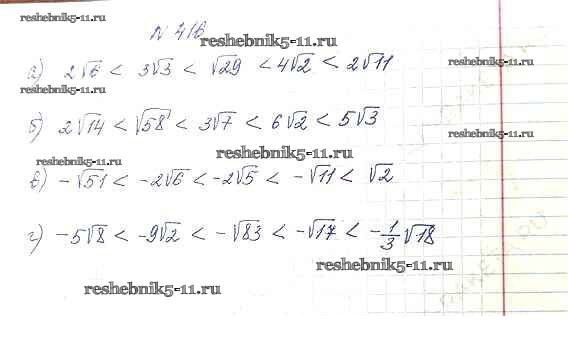 reshebnik5-11.ru
№ 416
reshebnik5-11.ru
а) 2√6 < 3√3 < √29 < 4√2 < 2√11
reshebnik5-11.ru
reshebnik5-11.ru
б) 2√14 < √58 < 3√7 < 6√2 < 5√3
reshebnik5-11.ru
reshebnik5-11.ru
reshebnik5-11.ru
в) -√51 < -2√6 < -2√5 < -√11 < √2
г) -5√8 < -9√2 < -√83 < -√17 < -1/3√18
reshebnik5-11.ru
reshebnik5-11.ru